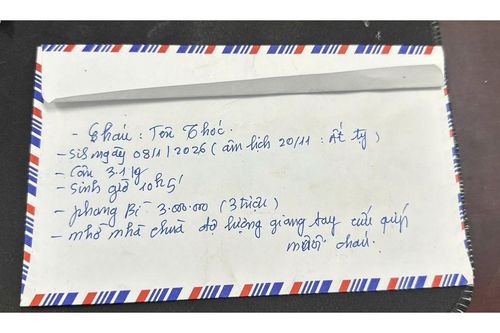 - Cháu : Tên Thóc.
- SiS ngày 08/1/2026 (âm lịch 20/11 : Ất tỵ)
- Cân 3.1 kg
- Sinh giờ 10h5'
- phong Bì 3.000.000 (3 triệu)
- nhờ nhà chùa độ lượng giang tay cứu giúp
mươi cháu.